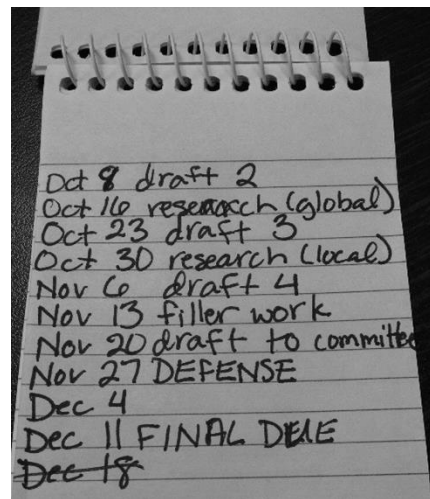 Oct 8 draft 2
Oct 16 research (global)
Oct 23 draft 3
Oct 30 research (local)
Nov 6 draft 4
Nov 13 filler work
Nov 20 draft to committee
Nov 27 DEFENSE
Dec 4
Dec 11 FINAL DUE
Dec 18